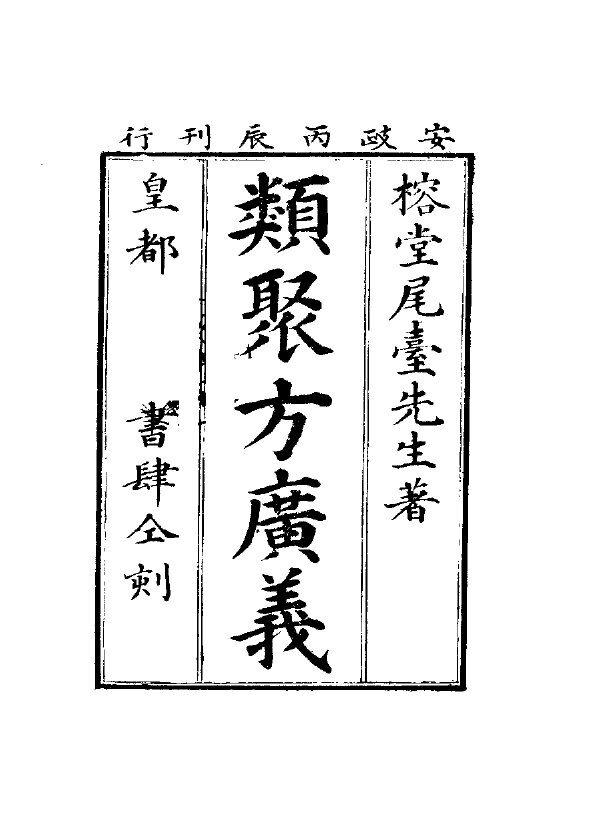 安政丙辰刊行
榕堂尾臺先生著
類聚方廣義
皇都 書肆仝刻